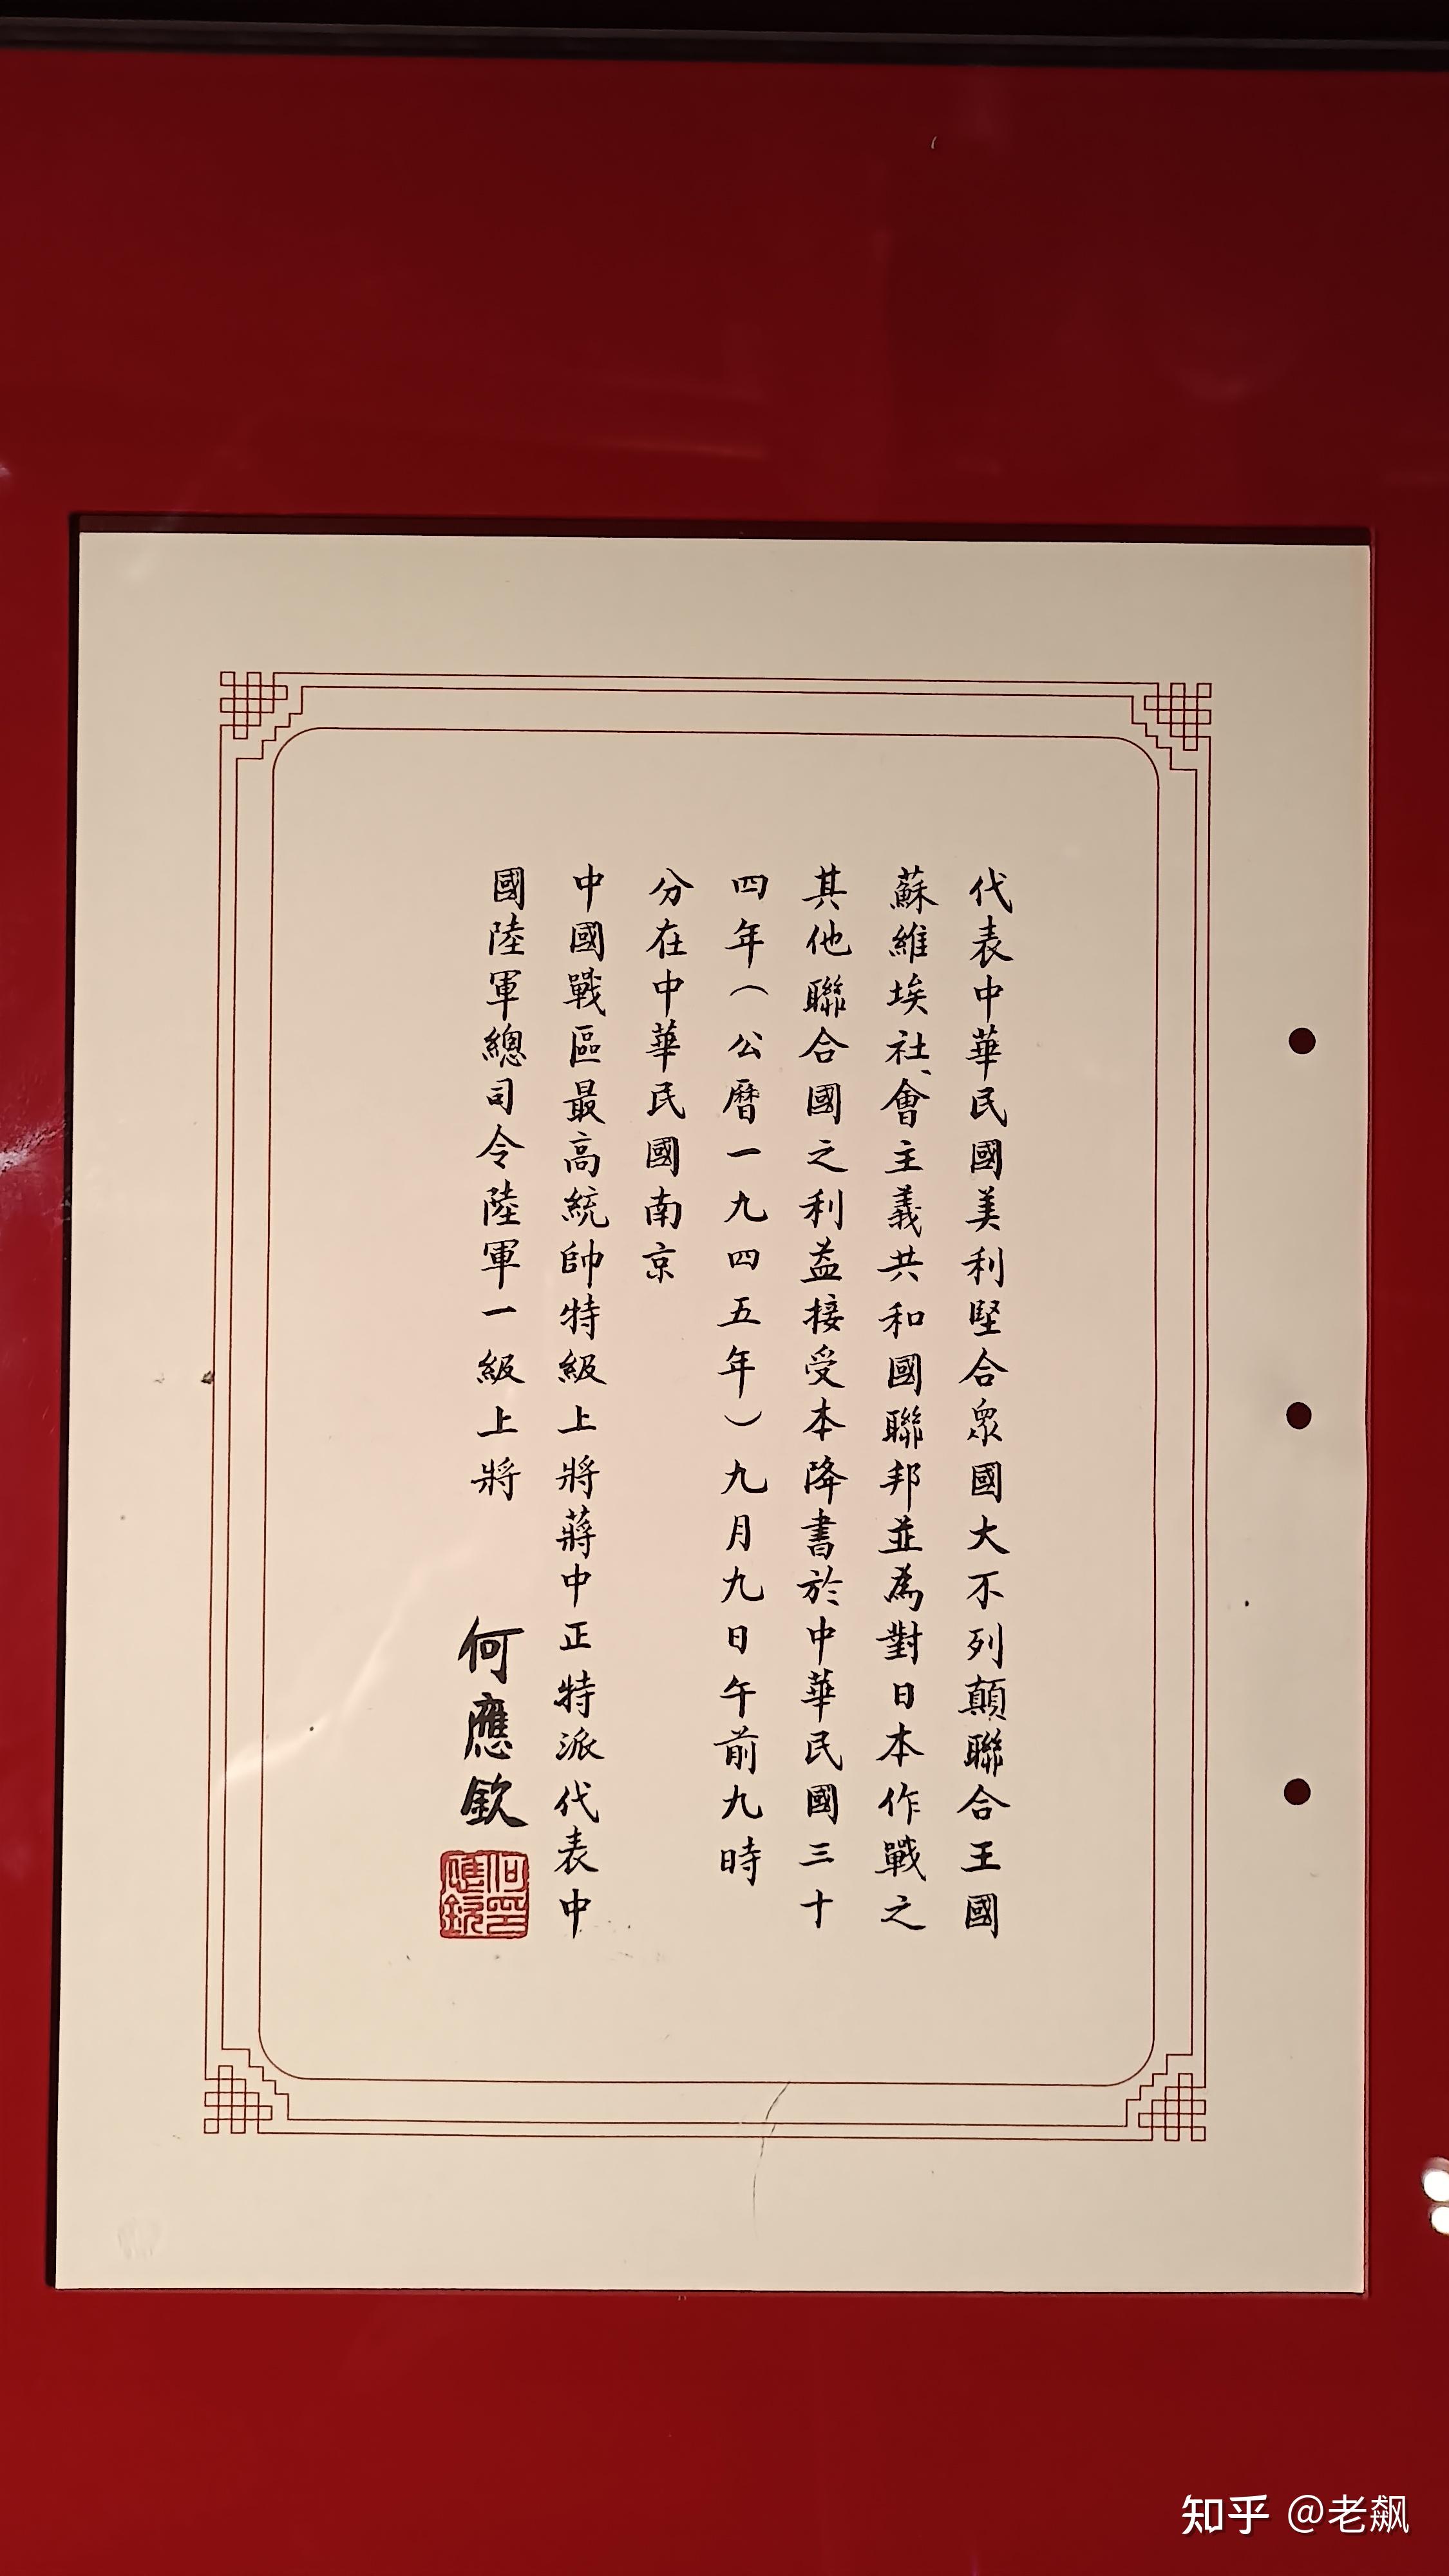 代表中華民國美利堅合眾國大不列顛聯合王國
蘇維埃社會主義共和國聯邦並為對日本作戰之
其他聯合國之利益接受本降書於中華民國三十
四年（公曆一九四五年）九月九日午前九時
分在中華民國南京
中國戰區最高統帥特級上將蔣中正特派代表中
國陸軍總司令陸軍一級上將
何應欽
何應欽印
知乎 @老飙